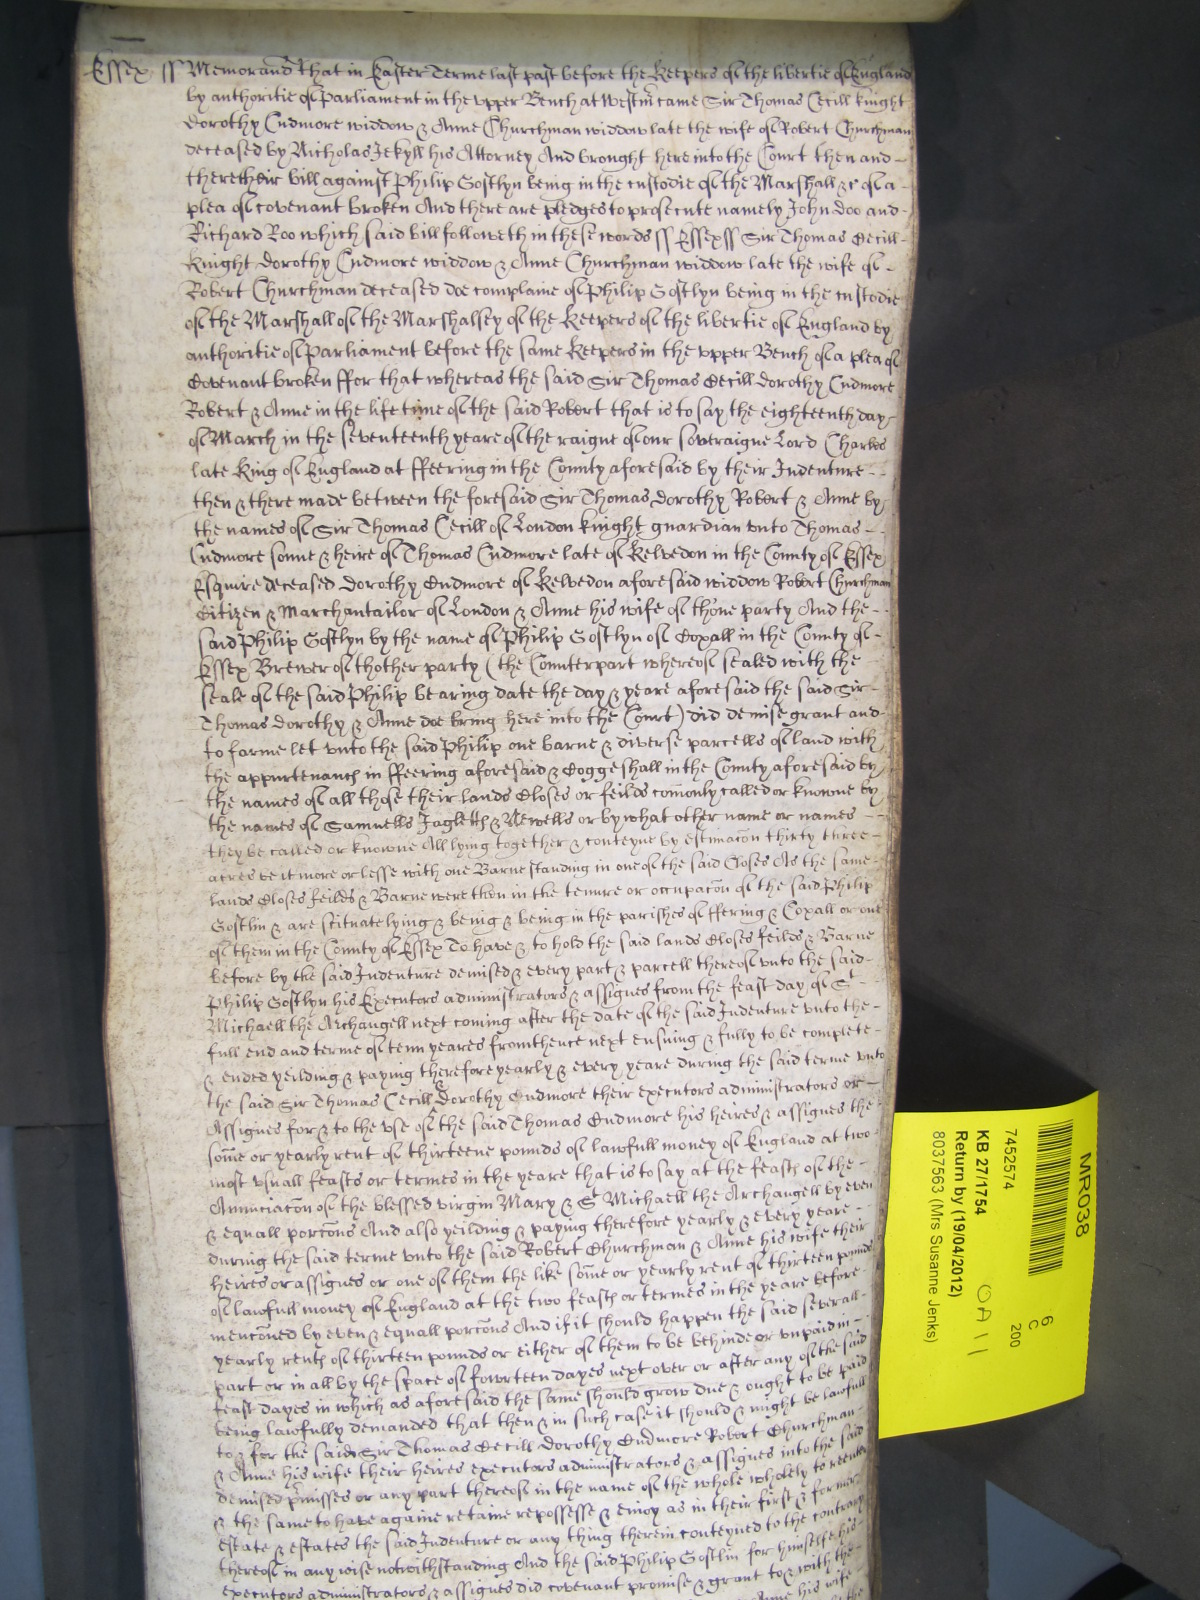 Essex ss Memorand that in Easter Terme last past before the Keepers of the libertie of England
by authoritie of Parliament in the upper Bench at Westmr came Sir Thomas Cecill knight
Dorothy Cudmore widdow & Anne Churchman widdow late the wife of Robert Churchman
deceased by Nicholas Jekyll his Attorney And brought here into the Court then and
there their bill against Philip Gostlyn being in the custodie of the Marshall &c of a
plea of covenant broken And there are pledges to prosecute namely John Doo and
Richard Roo which said bill followeth in these words ss Essex ss Sir Thomas Cecill
Knight Dorothy Cudmore widdow & Anne Churchman widdow late the wife of
Robert Churchman deceased doe complaine of Philip Gostlyn being in the custodie
of the Marshall of the Marshalsey of the Keepers of the libertie of England by
authoritie of Parliament before the same Keepers in the upper Bench of a plea of
Covenant broken ffor that whereas the said Sir Thomas Cecill Dorothy Cudmore
Robert & Anne in the life time of the said Robert that is to say the eighteenth day
of March in the seventeenth yeare of the raigne of our soveraigne Lord Charles
late King of England at ffeering in the County aforesaid by their Indenture
then & there made between the foresaid Sir Thomas Dorothy Robert & Anne by
the names of Sir Thomas Cecill of London knight guardian unto Thomas
Cudmore sonne & heire of Thomas Cudmore late of Kelvedon in the County of Essex
Esquire deceased Dorothy Cudmore of Kelvedon aforesaid widdow Robert Churchman
Citizen & Marchantailor of London & Anne his wife of thone party And the
said Philip Gostlyn by the name of Philip Gostlyn of Coxall in the County of
Essex Brewer of thother party (the Counterpart whereof sealed with the
seale of the said Philip bearing date the day & yeare aforesaid the said Sir
Thomas Dorothy & Anne doe bring here into the Court) did demise grant and
to farme let unto the said Philip one barne & diverse parcells of land with
the appurtenances in ffeering aforesaid & Coggeshall in the County aforesaid by
the names of all those their lands Closes or feilds comonly called or knowne by
the names of Samuells & Newells or by what other name or names
they be called or knowne All lying together & conteyne by estimacon thirty three
acres be it more or lesse with one Barne standing in one of the said Closes As the same
lands Closes feilds & Barne were then in the tenure or occupacon of the said Philip
Gostlin & are scituate lying & being & being in the parishes of ffering & Coxall or one
of them in the County of Essex To have & to hold the said lands Closes feilds & Barne
before by the said Indenture demised & every part & parcell thereof unto the said
Philip Gostlyn his Executors administrators & assignes from the feast day of St
Michaell the Archangell next coming after the date of the said Indenture unto the
full end and terme of tenn yeares from thence next ensuing & fully to be complete
& ended yeilding & paying therefore yearly & every yeare during the said terme unto
the said Sir Thomas Cecill Dorothy Cudmore their executors administrators or
Assignes for & to the use of the said Thomas Cudmore his heires & assignes the
some or yearly rent of thirteene pounds of lawfull money of England at two
most usuall feasts or termes in the yeare that is to say at the feasts of the
Anunciacon of the blessed virgin Mary & St Michaell the Archangell by even
& equall porcons And also yeilding & paying therefore yearly & every yeare
during the said terme unto the said Robert Churchman & Anne his wife their
heires or assignes or one of them the like some or yearly rent of thirteen pounds
of lawfull money of England at the two feasts or termes in the yeare before
mencioned by even & equall porcons And if it should happen the said severall
yearly rents of thirteen pounds or either of them to be behinde or unpaid in
part or in all by the space of fowrteen dayes next over or after any of the said
feast dayes in which as aforesaid the same should grow due & ought to be paid
being lawfully demanded that then & in such case it should & might be lawfull
to & for the said Sir Thomas Cecill Dorothy Cudmore Robert Churchman
& Anne his wife their heires executors administrators & assignes into the said
demised premisses or any part thereof in the name of the whole wholely to reenter
& the same to have againe retaine repossesse & enioy as in their first & former
estate & estates the said Indenture or any thing therein conteyned to the contrary
thereof in any wise notwithstanding And the said Philip Gostlin for himselfe his
executors administrators & assignes did covenant promise & grant to & with the
MR038
6
C
200
7452574
KB 27/1754
OA 11
Return by (19/04/2012)
8037563 (Mrs Susanne Jenks)